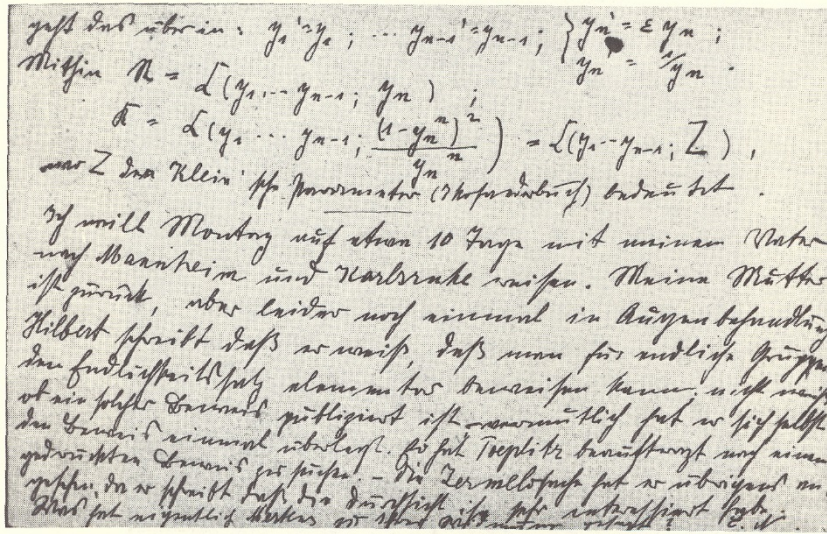 geht das über in: y₁' = y₁; ... yₙ₋₁' = yₙ₋₁; } yₙ' = ε yₙ;
yₙ' = 1/yₙ.
Mithin R = L(y₁...yₙ₋₁; yₙ);
K = L(y₁ ... yₙ₋₁; (1-yₙⁿ)²/yₙⁿ) = L(y₁...yₙ₋₁; Z),
wo Z den Klein'sche Parameter (Ikosaederbuch) bedeutet.
Ich will Montag auf etwa 10 Tage mit meinem Vater
nach Mannheim und Karlsruhe reisen. Meine Mutter
ist zurück, aber leider noch einmal in Augenbehandlung
Hilbert schreibt daß er weiß, daß man für endliche Gruppen
den Endlichkeitssatz elementar beweisen kann; nicht weiß
ob ein solcher Beweis publiziert ist, vermutlich hat er sich selbst
den Beweis einmal überlegt. Er hat Toeplitz beauftragt nach einem
gedruckten Beweis zu suchen. – Die Zermelosache hat er übrigens an-
gesehen, da er schreibt daß die Durchsicht ihn sehr interessiert habe.
Was hat eigentlich